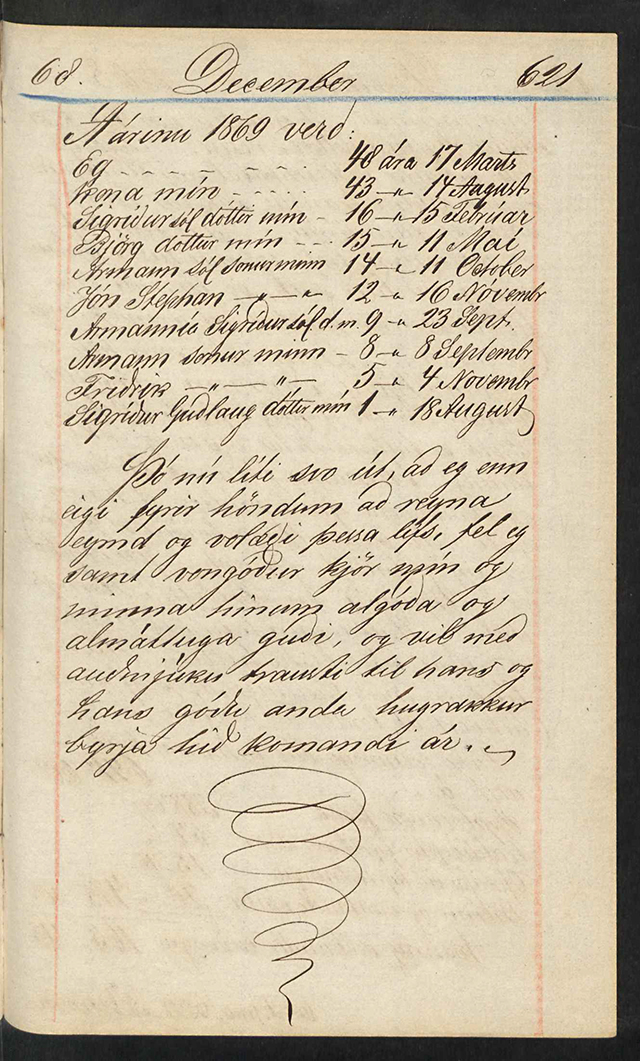 68. December 621
Á árinu 1869 verð:
Eg - - - - - - - 48 ára 17 Marts
kona mín - - - - 43 -"- 14 August
Sigríður sál dóttir mín - 16 -"- 15 Februar
Björg dóttur mín - - - 15 -"- 11 Mai
Armann sál sonur minn 14 -"- 11 October
Jón Stephan -"-"- 12 -"- 16 Novembr
Armannía Sigríður sál d. m. 9 -"- 23 Sept.
Armann sonur minn - 8 -"- 8 Septembr
Friðrik -"- -"- 5 -"- 4 Novembr
Sigríður Guðlaug dóttir mín 1 -"- 18 August
Þó nú líti svo út, að eg enn
eigi fyrir höndum að reyna
eymd og volæði þessa lífs, fel eg
samt vongóður kjör mín og
minna hinum algóða og
almáttuga guði, og vil með
auðmjúku trausti til hans og
hans góða anda hugrakkur
byrja hið komandi ár.